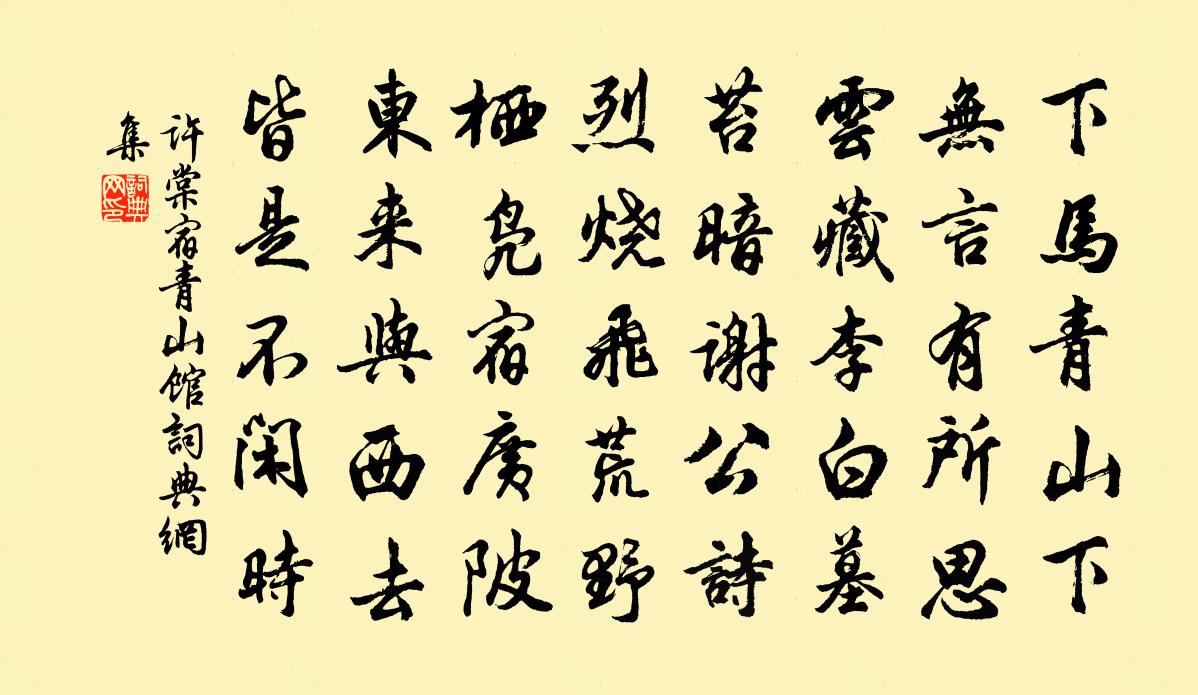 下馬青山下
無言有所思
雲藏李白墓
苔暗謝公詩
烈燒飛荒野
栖鳧宿廣陂
東来與西去
皆是不閑時
許棠宿青山館詞典網
集
詞典
网印